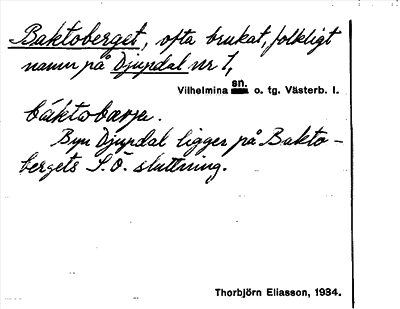 Baktoberget, ofta brukat, folkligt
namn på Djupdal nr 1,
sn.
Vilhelmina o. tg. Västerb. l.
báktobærje.
Byn Djupdal ligger på Bakto-
bergets S.Ö. sluttning.
Thorbjörn Eliasson, 1934.